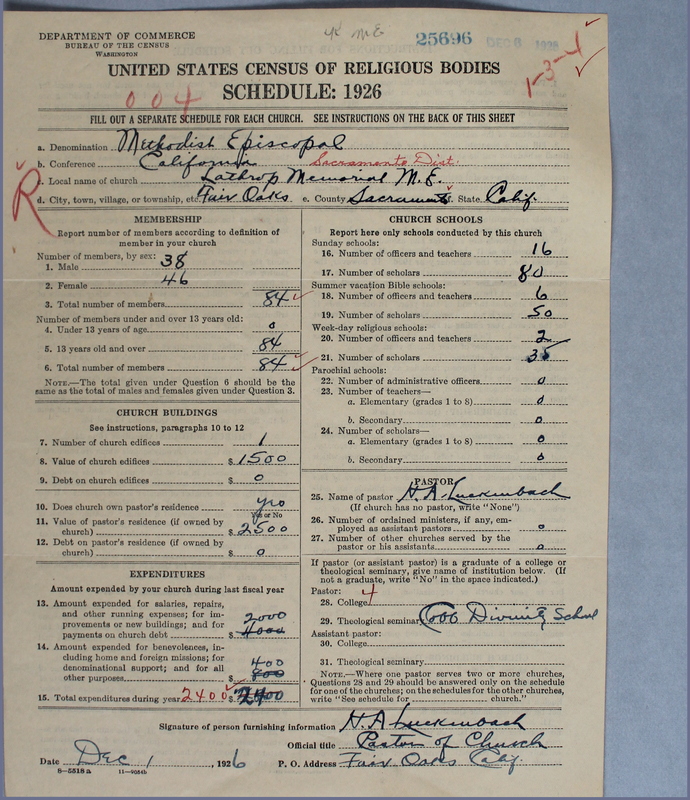 DEPARTMENT OF COMMERCE
BUREAU OF THE CENSUS
WASHINGTON
25696 DEC 8 1926
1-3-4
UNITED STATES CENSUS OF RELIGIOUS BODIES
SCHEDULE: 1926
004
FILL OUT A SEPARATE SCHEDULE FOR EACH CHURCH. SEE INSTRUCTIONS ON THE BACK OF THIS SHEET
a. Denomination Methodist Episcopal
b. Conference California Sacramento Dist.
c. Local name of church Lathrop Memorial M.E.
d. City, town, village, or township, etc. Fair Oaks e. County Sacramento f. State Calif.
R
MEMBERSHIP
Report number of members according to definition of
member in your church
Number of members, by sex:
1. Male 38
2. Female 46
3. Total number of members 84
Number of members under and over 13 years old:
4. Under 13 years of age 0
5. 13 years old and over 84
6. Total number of members 84
NOTE.—The total given under Question 6 should be
the same as the total of males and females given under Question 3.
CHURCH BUILDINGS
See instructions, paragraphs 10 to 12
7. Number of church edifices 1
8. Value of church edifices $ 1500
9. Debt on church edifices $ 0
10. Does church own pastor's residence yes
Yes or No
11. Value of pastor's residence (if owned by
church) $ 2500
12. Debt on pastor's residence (if owned by
church) $ 0
EXPENDITURES
Amount expended by your church during last fiscal year
13. Amount expended for salaries, repairs,
and other running expenses; for im-
provements or new buildings; and for 2000
payments on church debt $ 4000
14. Amount expended for benevolences, in-
cluding home and foreign missions; for
denominational support; and for all 400
other purposes $ 800
15. Total expenditures during year 2400 $ 2400
CHURCH SCHOOLS
Report here only schools conducted by this church
Sunday schools:
16. Number of officers and teachers 16
17. Number of scholars 80
Summer vacation Bible schools:
18. Number of officers and teachers 6
19. Number of scholars 50
Week-day religious schools:
20. Number of officers and teachers 2
21. Number of scholars 35
Parochial schools:
22. Number of administrative officers 0
23. Number of teachers—
a. Elementary (grades 1 to 8) 0
b. Secondary 0
24. Number of scholars—
a. Elementary (grades 1 to 8) 0
b. Secondary 0
PASTOR
25. Name of pastor H. A. Luckenbach
(If church has no pastor, write "None")
26. Number of ordained ministers, if any, em-
ployed as assistant pastors 0
27. Number of other churches served by the
pastor or his assistants 0
If pastor (or assistant pastor) is a graduate of a college or
theological seminary, give name of institution below. (If
not a graduate, write "No" in the space indicated.)
Pastor:
28. College 4
29. Theological seminary Divinity School
Assistant pastor:
30. College
31. Theological seminary
NOTE.—Where one pastor serves two or more churches,
Questions 28 and 29 should be answered only on the schedule
for one of the churches; on the schedules for the other churches,
write "See schedule for church."
Signature of person furnishing information H. A. Luckenbach
Official title Pastor of Church
Date Dec 1, 1926 P. O. Address Fair Oaks Calif.
8-5518a 11-9054b